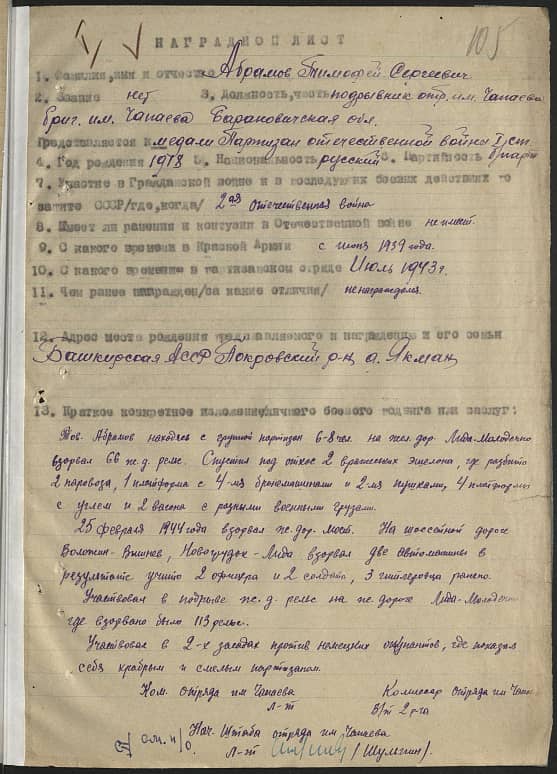 105
НАГРАДНОЙ ЛИСТ
1. Фамилия, имя и отчество Абрамов Тимофей Сергеевич
2. Звание нет 3. Должность, часть подрывник отр. им. Чапаева
бриг. им. Чапаева Барановичская обл.
Представляется к медали Партизан отечественной войны I ст.
4. Год рождения 1918 5. Национальность русский 6. Партийность б/парт
7. Участие в Гражданской войне и в последующих боевых действиях по
защите СССР/где, когда/ 2ая отечественная война
8. Имеет ли ранения и контузии в Отечественной войне не имеет.
9. С какого времени в Красной Армии с июня 1939 года.
10. С какого времени в партизанском отряде Июль 1943 г.
11. Чем ранее награжден/за какие отличия/ не награждался
12. Адрес места рождения представляемого к награждению и его семьи
Башкирская АССР Покровский р-н д. Якман
13. Краткое конкретное изложение личного боевого подвига или заслуг:
Тов. Абрамов находясь с группой партизан 6-8 чел. на жел. дор. Лида-Молодечно
взорвал 66 ж.д. рельс. Спустил под откос 2 вражеских эшелона, где разбито
2 паровоза, 1 платформа с 4-мя бронемашинами и 2-мя пушками, 4 платформы
с углем и 2 вагона с разными военными грузами.
25 февраля 1944 года взорвал ж. дор. мост. На шоссейной дороге
Воложин-Вишнев, Новогрудок-Лида взорвал две автомашины в
результате учито 2 офицера и 2 солдата, 3 гитлеровца ранено.
Участвовал в подрыве ж.д. рельс на ж. дороге Лида-Молодечно
где взорвано было 113 рельс.
Участвовал в 2-х засадах против немецких оккупантов, где показал
себя храбрым и смелым партизаном.
Ком. отряда им Чапаева Комиссар отряда им Чапа
л-т
Нач. Штаба отряда им. Чапаева
см. н/о. л-т (Шульгин).